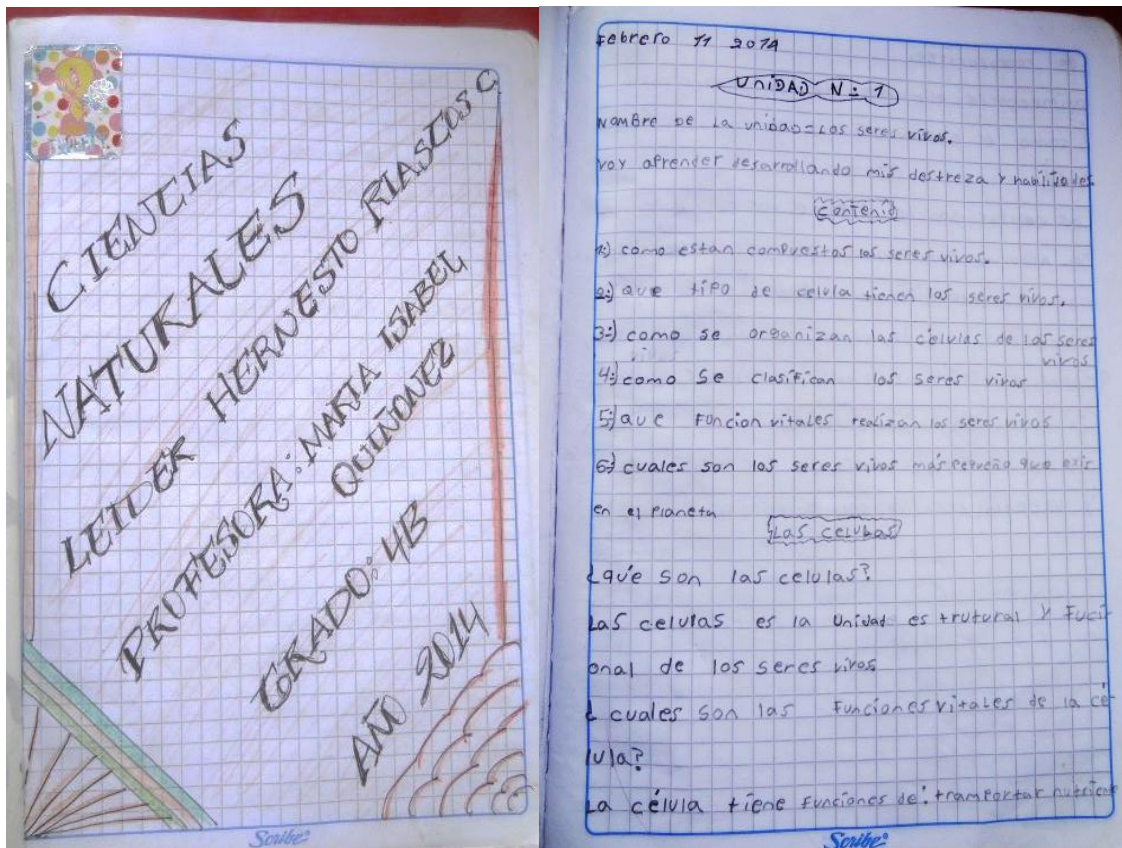 CIENCIAS
NATURALES
LEIDER HERNESTO RIASCOS C
PROFESORA: MARIA ISABEL
QUIÑONEZ
GRADO: 4B
AÑO 2014
Scribe
Febrero 11 2014
UniDAD N= 1
NOMBRE DE LA UNIDAD = LOS seres vivos.
voy aprender desarrollando mis destreza y habilidades
Contenio
1:) como estan compuestos los seres vivos.
2:) que tipo de celula tienen los seres vivos.
3:) como se organizan las células de los seres
vivos
4:) como se clasifican los seres vivos
5:) que Funcion vitales realizan los seres vivos
6:) cuales son los seres vivos más pequeño que exis
en el planeta
Las celulas
¿que son las celulas?
Las celulas es la unidad estrutural y Fuci-
onal de los seres vivos
¿cuales son las Funciones vitales de la cé-
lula?
La célula tiene Funciones de: tramportar nutrient
Scribe